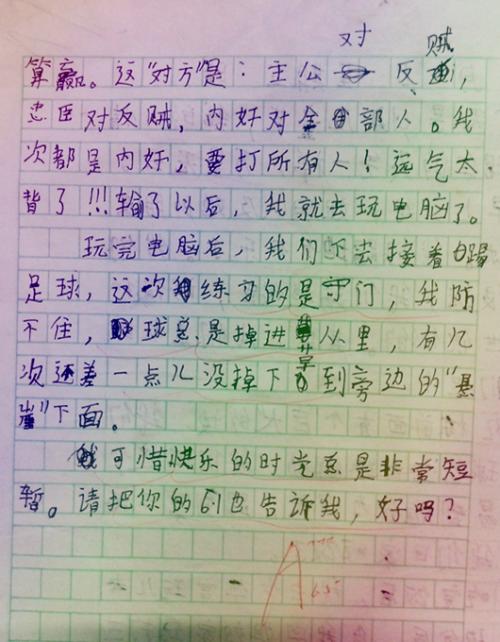 对 贼
算赢。这"对方"是：主公 反 ，
忠臣对反贼，内奸对全部人。我
次都是内奸，要打所有人！运气太
背了！！！输了以后，我就去玩电脑了。
玩完电脑后，我们下去接着踢
足球，这次练习的是守门，我防
不住，球总是掉进草丛里，有几
次还差一点儿没掉下到旁边的"悬
崖"下面。
可惜快乐的时光总是非常短
暂。请把你的也告诉我，好吗？
A